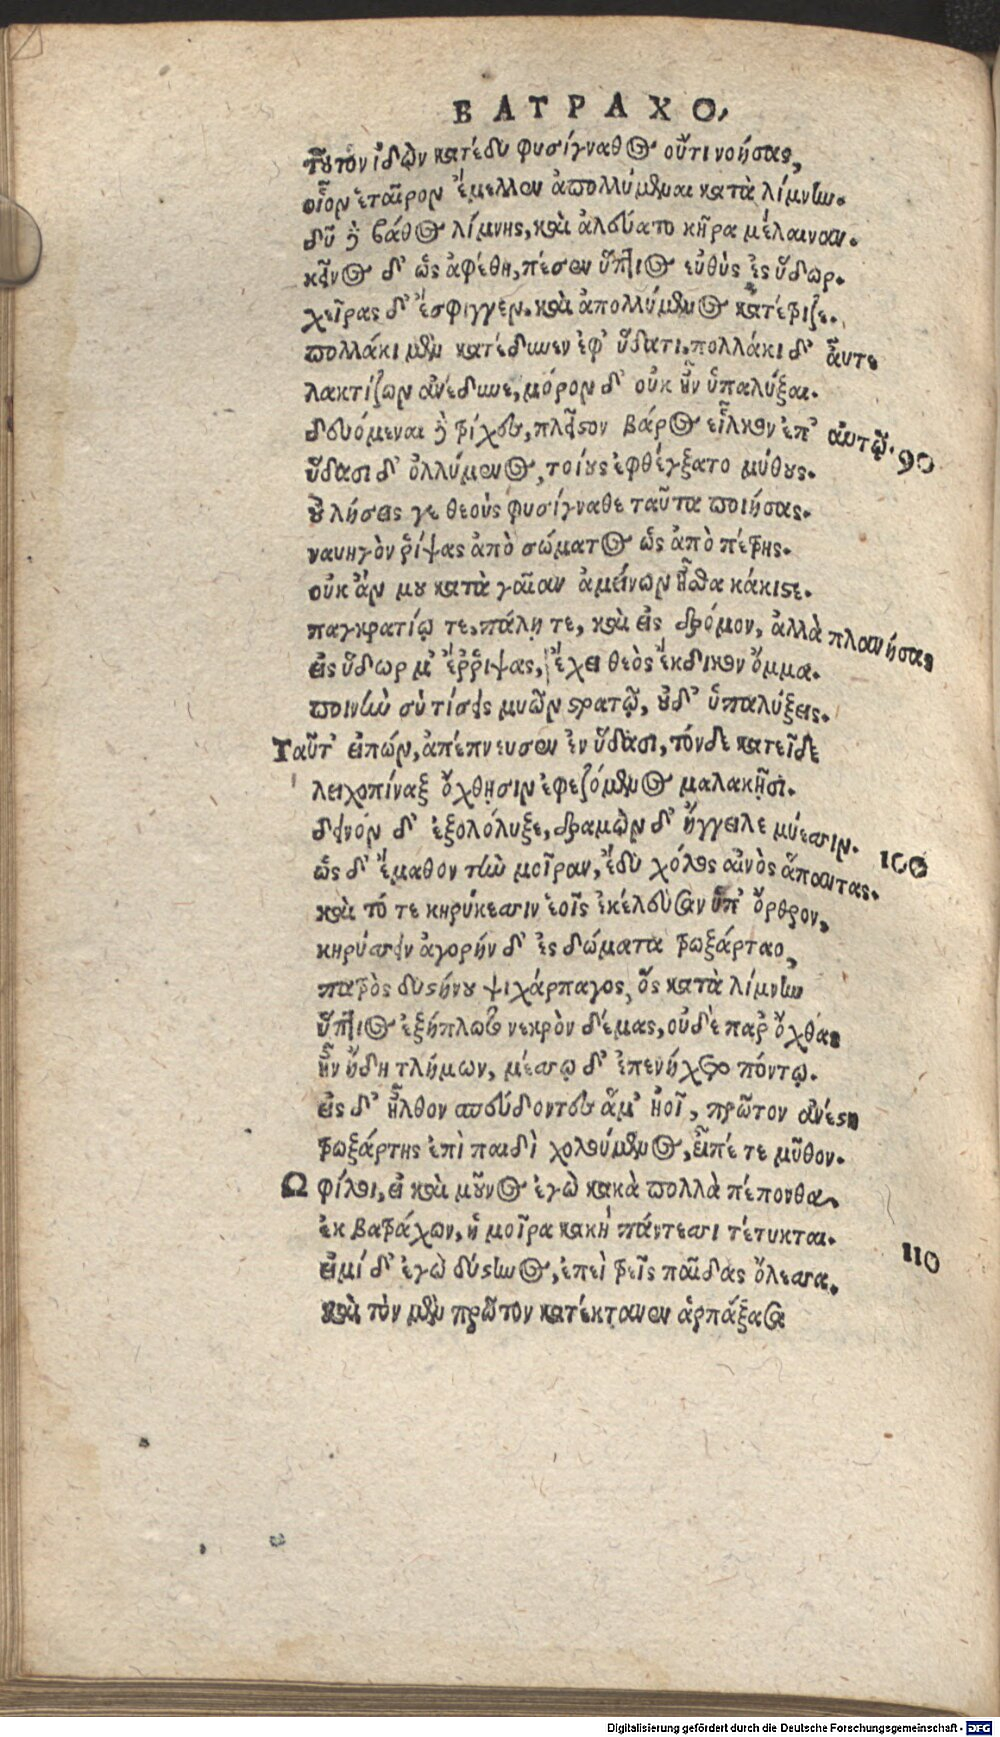 ΒΑΤΡΑΧΟ,
τοῦτον ἰδὼν κατέδυ φυσίγναθος οὔτι νοήσας,
οἷον ἑταῖρον ἔμελλεν ἀπολλύμεναι κατὰ λίμνην.
δῦ δὲ βάθος λίμνης, καὶ ἀλεύατο κῆρα μέλαιναν.
κεῖνος δ' ὡς ἀφέθη, πέσεν ὕπτιος εὐθὺς ἐς ὕδωρ.
χεῖρας δ' ἔσφιγγεν. καὶ ἀπολλύμενος κατέτριζε.
πολλάκι μὲν κατέδυνεν ἐφ' ὕδατι, πολλάκι δ' αὖτε
λακτίζων ἀνέδυνε, μόρον δ' οὐκ ἦν ὑπαλύξαι.
δευόμεναι δὲ τρίχες, πλεῖστον βάρος εἷλκον ἐπ' αὐτῷ. 90
ὕδασι δ' ὀλλύμενος, τοίους ἐφθέγξατο μύθους.
οὐ λήσεις γε θεοὺς φυσίγναθε ταῦτα ποιήσας.
ναυηγὸν ῥίψας ἀπὸ σώματος ὡς ἀπὸ πέτρης.
οὐκ ἄν μου κατὰ γαῖαν ἀμείνων ἦσθα κάκιστε.
παγκρατίῳ τε, πάλῃ τε, καὶ εἰς δρόμον, ἀλλὰ πλανήσας
εἰς ὕδωρ μ' ἔῤῥιψας, ἔχει θεὸς ἔκδικον ὄμμα.
ποινὴν σὺ τίσεις μυῶν στρατῷ, οὐδ' ὑπαλύξεις.
Ταῦτ' εἰπών, ἀπέπνευσεν ἐν ὕδασι, τόνδε κατεῖδε
λειχοπίναξ ὄχθῃσιν ἐφεζόμενος μαλακῇσι.
δεινόν δ' ἐξολόλυξε, δραμὼν δ' ἤγγειλε μύεσσιν. 100
ὡς δ' ἔμαθον τὴν μοῖραν, ἔδυ χόλος αἰνὸς ἅπαντας.
καὶ τό τε κηρύκεσσιν ἑοῖς ἐκέλευσαν ὑπ' ὄρθρον,
κηρύσσειν ἀγορήν δ' ἐς δώματα τρωξάρταο,
πατρὸς δυστήνου ψιχάρπαγος, ὃς κατὰ λίμνην
ὕπτιος ἐξήπλωτο νεκρὸν δέμας, οὐδὲ παρ' ὄχθας
ἦν ἤδη τλήμων, μέσσῳ δ' ἐπενήχετο πόντῳ.
εἰς δ' ἦλθον σπεύδοντες ἅμ' ἠοῖ, πρῶτον ἀνέστη
τρωξάρτης ἐπὶ παιδὶ χολούμενος, εἶπέ τε μῦθον.
Ω φίλοι, εἰ καὶ μοῦνος ἐγὼ κακὰ πολλὰ πέπονθα,
ἐκ βατράχων, ἡ μοῖρα κακὴ πάντεσσι τέτυκται. 110
εἰμί δ' ἐγὼ δύστηνος, ἐπεὶ τρεῖς παῖδας ὄλεσσα.
καὶ τὸν μὲν πρῶτον κατέκτανεν ἁρπάξασα
Digitalisierung gefördert durch die Deutsche Forschungsgemeinschaft - DFG